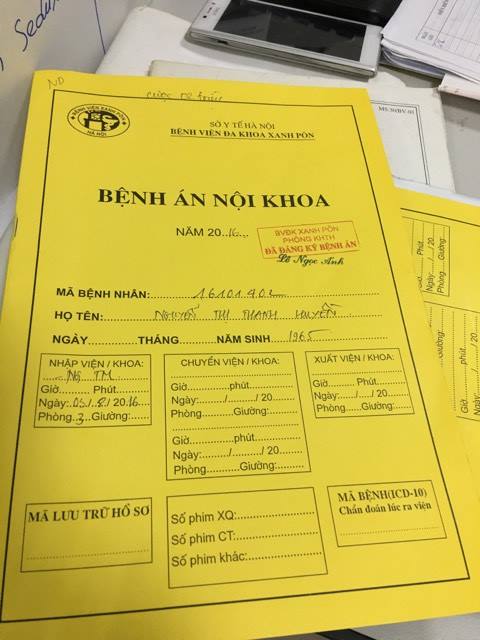 ND
BỆNH VIỆN XANH PÔN
HÀ NỘI
SỞ Y TẾ HÀ NỘI
BỆNH VIỆN ĐA KHOA XANH PÔN
MS:30/BV-01
BỆNH ÁN NỘI KHOA
NĂM 20..16....
BVĐK XANH PÔN
PHÒNG KHTH
ĐÃ ĐĂNG KÝ BỆNH ÁN
Lê Ngọc Anh
MÃ BỆNH NHÂN: 16101902
HỌ TÊN: NGUYỄN THỊ THANH HUYỀN
NGÀY THÁNG NĂM SINH 1965
NHẬP VIỆN / KHOA:
Ng TM
Giờ Phút
Ngày: 03/8/2016
Phòng 3 Giường:
CHUYỂN VIỆN / KHOA:
Giờ phút
Ngày: / / 20
Phòng Giường:
Giờ phút
Ngày: / / 20
Phòng Giường:
XUẤT VIỆN / KHOA:
Giờ Phút
Ngày: / / 20
Phòng Giường:
MÃ LƯU TRỮ HỒ SƠ
Số phim XQ:
Số phim CT:
Số phim khác:
MÃ BỆNH(ICD-10)
Chẩn đoán lúc ra viện
Phút.
Ngày / / 20
Giường:
phút
Giường: